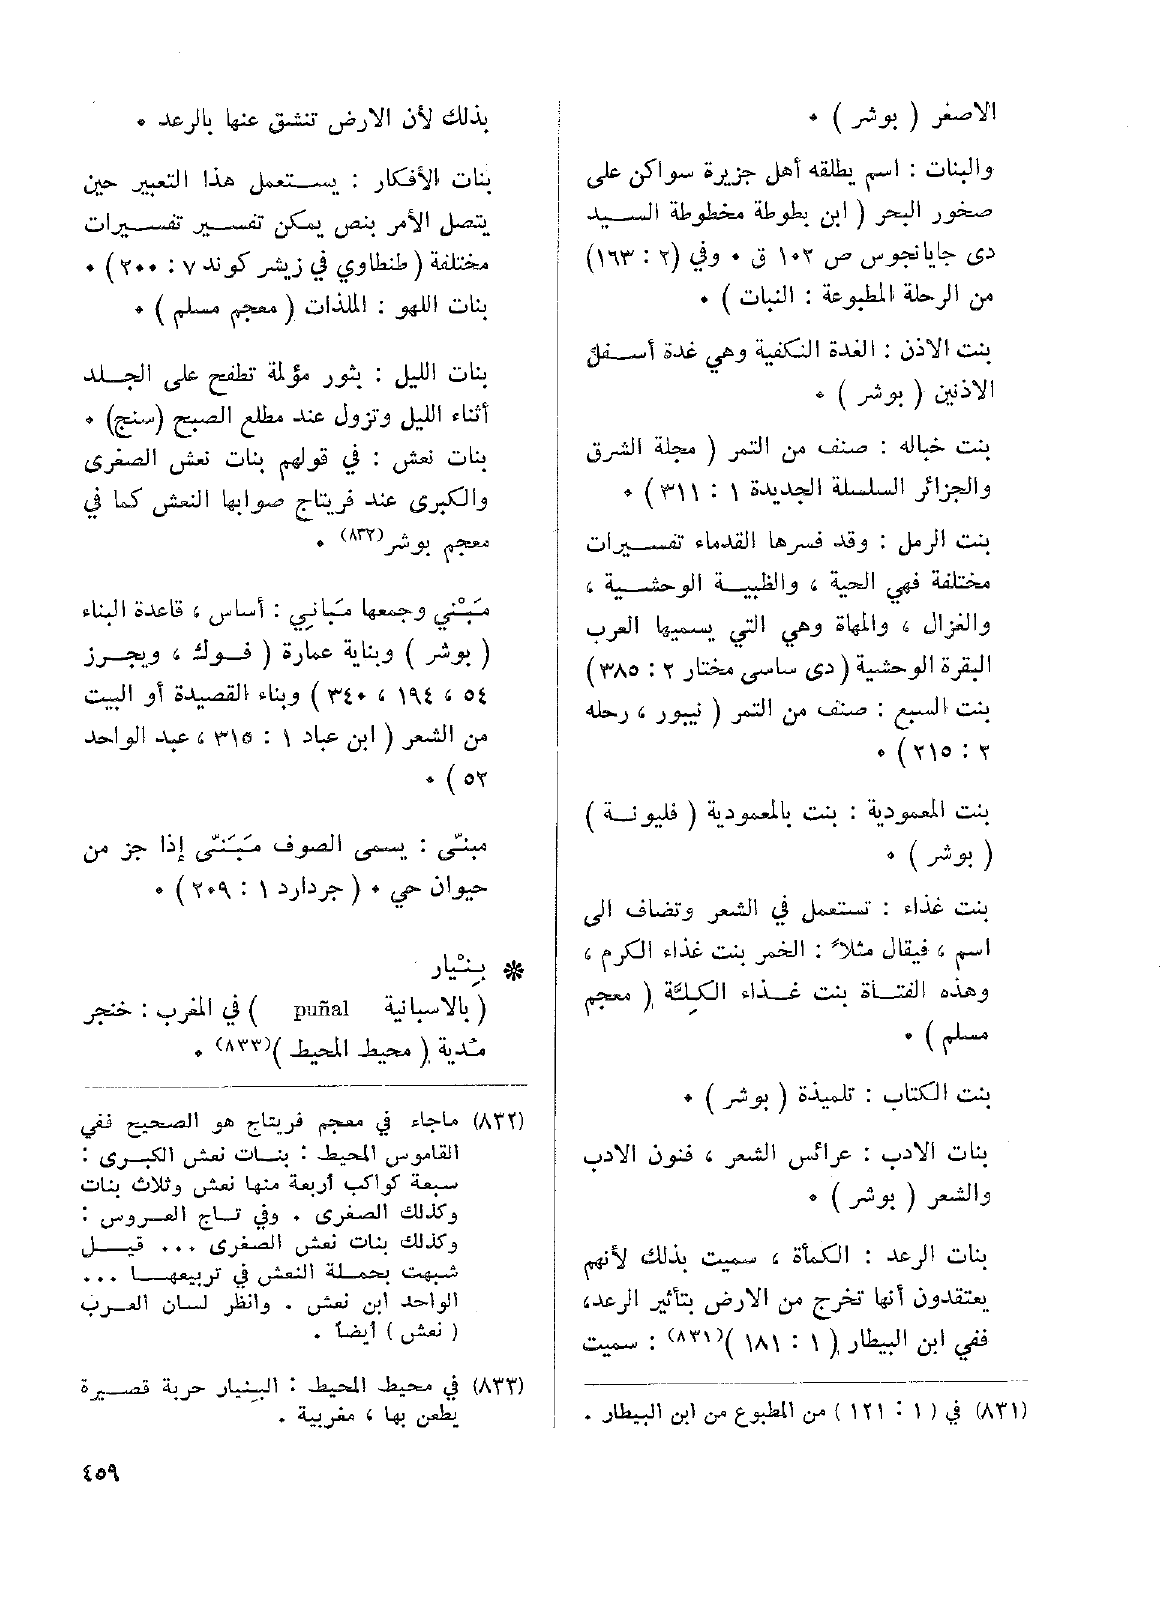 الاصغر ( بوشر ) •
والبنات : اسم يطلقه أهل جزيرة سواكن على
صخور البحر ( ابن بطوطة مخطوطة السيد
دى جايانجوس ص ١٠٢ ق • وفي (٢ : ١٦٣)
من الرحلة المطبوعة : النبات ) •
بنت الاذن : الغدة النكفية وهي غدة أسفل
الاذنين ( بوشر ) •
بنت خباله : صنف من التمر ( مجلة الشرق
والجزائر السلسلة الجديدة ١ : ٣١١) •
بنت الرمل : وقد فسرها القدماء تفسيرات
مختلفة فهي الحية ، والظبية الوحشية ،
والغزال ، والمهاة وهي التي يسميها العرب
البقرة الوحشية ( دى ساسى مختار ٢ : ٣٨٥)
بنت السبع : صنف من التمر ( نيبور ، رحله
٢ : ٢١٥ ) •
بنت المعمودية : بنت بالمعمودية ( فليونة )
( بوشر ) •
بنت غذاء : تستعمل في الشعر وتضاف الى
اسم ، فيقال مثلاً : الخمر بنت غذاء الكرم ،
وهذه الفتاة بنت غذاء الكِلَّة ( معجم
مسلم ) •
بنت الكتاب : تلميذة ( بوشر ) •
بنات الادب : عرائس الشعر ، فنون الادب
والشعر ( بوشر ) •
بنات الرعد : الكمأة ، سميت بذلك لأنهم
يعتقدون أنها تخرج من الارض بتأثير الرعد،
ففي ابن البيطار ( ١ : ١٨١ )(٨٣١) : سميت
(٨٣١) في ( ١ : ١٢١ ) من المطبوع من ابن البيطار .
بذلك لأن الارض تنشق عنها بالرعد •
بنات الأفكار : يستعمل هذا التعبير حين
يتصل الأمر بنص يمكن تفسير تفسيرات
مختلفة ( طنطاوي في زيشر كوند ٧ : ٢٠٠) •
بنات اللهو : الملذات ( معجم مسلم ) •
بنات الليل : بثور مؤلمة تطفح على الجلد
أثناء الليل وتزول عند مطلع الصبح (سنج) •
بنات نعش : في قولهم بنات نعش الصغرى
والكبرى عند فريتاج صوابها النعش كما في
معجم بوشر(٨٣٢) •
مَبْني وجمعها مَبَانِي : أساس ، قاعدة البناء
( بوشر ) وبناية عمارة ( فوك ، ويجرز
٥٤ ، ١٩٤ ، ٣٤٠ ) وبناء القصيدة أو البيت
من الشعر ( ابن عباد ١ : ٣١٥ ، عبد الواحد
٥٢ ) •
مبنّى : يسمى الصوف مَبَنّى إذا جز من
حيوان حي • ( جردارد ١ : ٢٠٩ ) •
❋ بِنْيار
( بالاسبانية puñal ) في المغرب : خنجر
مُدية ( محيط المحيط )(٨٣٣) •
(٨٣٢) ماجاء في معجم فريتاج هو الصحيح ففي
القاموس المحيط : بنات نعش الكبرى :
سبعة كواكب أربعة منها نعش وثلاث بنات
وكذلك الصغرى . وفي تاج العروس :
وكذلك بنات نعش الصغرى ... قيل
شبهت بحملة النعش في تربيعها ...
الواحد ابن نعش . وانظر لسان العرب
( نعش ) أيضاً .
(٨٣٣) في محيط المحيط : البِنيار حربة قصيرة
يطعن بها ، مغربية .
٤٥٩